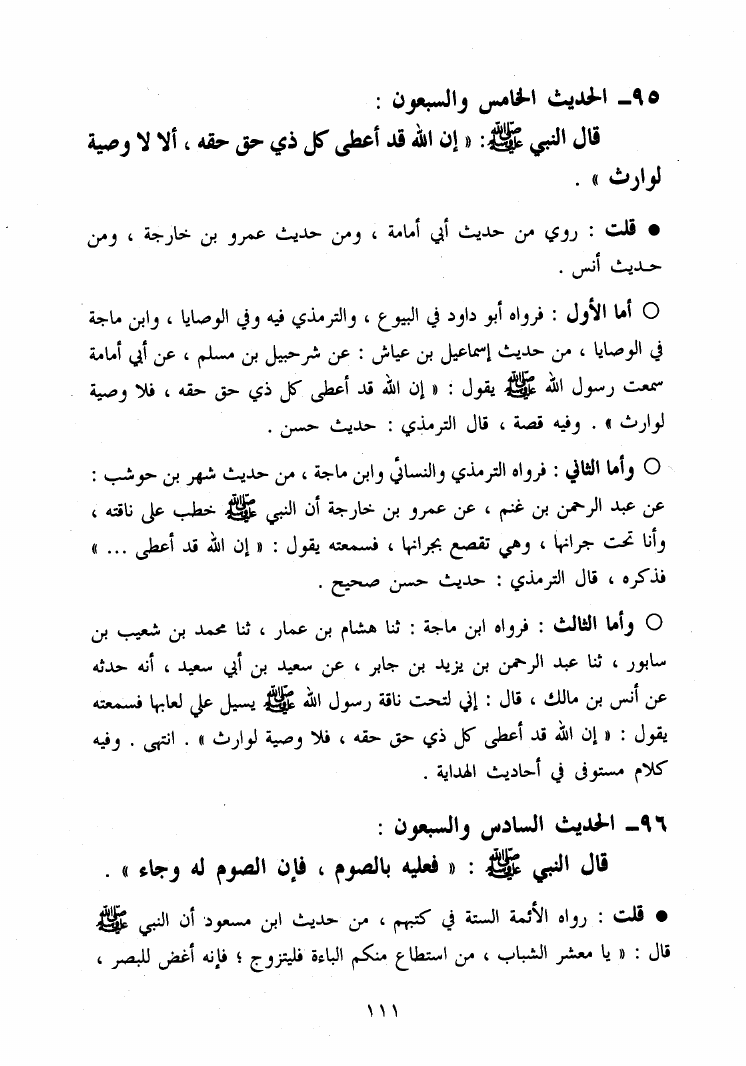 ٩٥ـ الحديث الخامس والسبعون :
قال النبي ﷺ: « إن الله قد أعطى كل ذي حق حقه ، ألا لا وصية
لوارث » .
● قلت : روي من حديث أبي أمامة ، ومن حديث عمرو بن خارجة ، ومن
حديث أنس .
○ أما الأول : فرواه أبو داود في البيوع ، والترمذي فيه وفي الوصايا ، وابن ماجة
في الوصايا ، من حديث إسماعيل بن عياش : عن شرحبيل بن مسلم ، عن أبي أمامة
سمعت رسول الله ﷺ يقول : « إن الله قد أعطى كل ذي حق حقه ، فلا وصية
لوارث » . وفيه قصة ، قال الترمذي : حديث حسن .
○ وأما الثاني : فرواه الترمذي والنسائي وابن ماجة ، من حديث شهر بن حوشب :
عن عبد الرحمن بن غنم ، عن عمرو بن خارجة أن النبي ﷺ خطب على ناقته ،
وأنا تحت جرانها ، وهي تقصع بجرانها ، فسمعته يقول : « إن الله قد أعطى ... »
فذكره ، قال الترمذي : حديث حسن صحيح .
○ وأما الثالث : فرواه ابن ماجة : ثنا هشام بن عمار ، ثنا محمد بن شعيب بن
سابور ، ثنا عبد الرحمن بن يزيد بن جابر ، عن سعيد بن أبي سعيد ، أنه حدثه
عن أنس بن مالك ، قال : إني لتحت ناقة رسول الله ﷺ يسيل علي لعابها فسمعته
يقول : « إن الله قد أعطى كل ذي حق حقه ، فلا وصية لوارث » . انتهى . وفيه
كلام مستوفى في أحاديث الهداية .
٩٦ـ الحديث السادس والسبعون :
قال النبي ﷺ : « فعليه بالصوم ، فإن الصوم له وجاء » .
● قلت : رواه الأئمة الستة في كتبهم ، من حديث ابن مسعود أن النبي ﷺ
قال : « يا معشر الشباب ، من استطاع منكم الباءة فليتزوج ؛ فإنه أغض للبصر ،
١١١